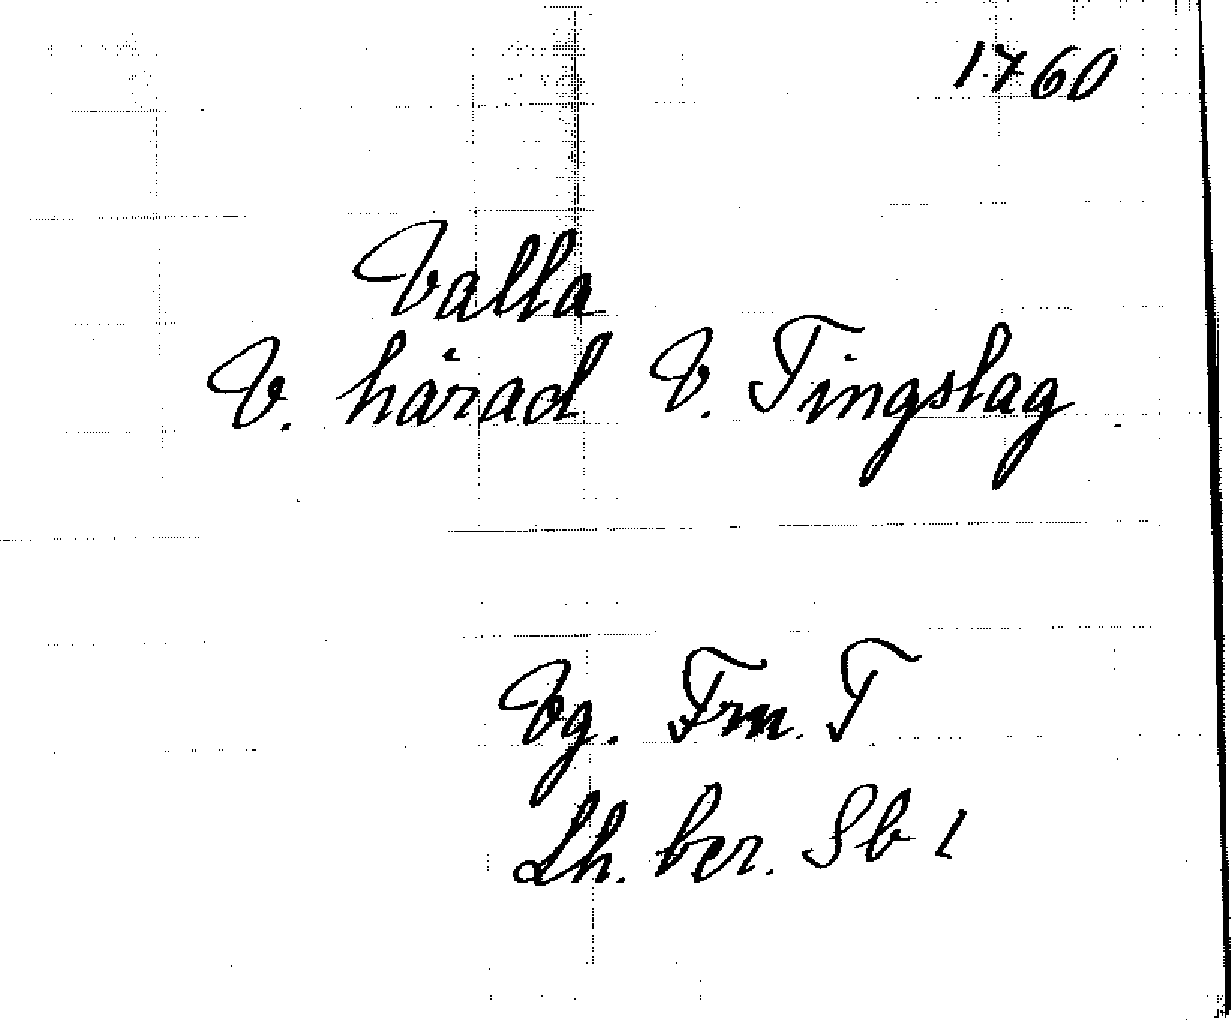 1760
Valla
V. härad V. Tingslag
Vg. Frn. T
Lh. ber. Sb 1